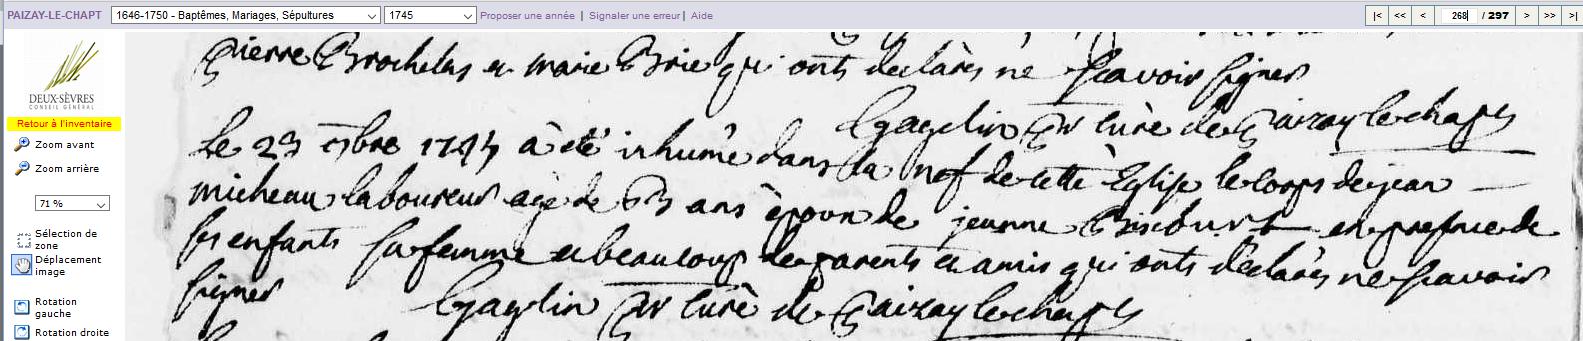 PAIZAY-LE-CHAPT 1646-1750 - Baptêmes, Mariages, Sépultures 1745 Proposer une année | Signaler une erreur | Aide |< << < 268 / 297 > >> >|
DEUX-SÈVRES
CONSEIL GÉNÉRAL
Retour à l'inventaire
Zoom avant
Zoom arrière
71 %
Sélection de
zone
Déplacement
image
Rotation
gauche
Rotation droite
pierre Brochelus et marie Brie qui onts declarés ne scavoir signer
ptr curé de Paizay le chapt
Le 1745 à été inhumé dans la nef de cette Eglise le corps de jean
micheau laboureur agé de ans époux de jeanne en presence de
ses enfants sa femme et beaucoup de parents et amis qui onts déclarés ne scavoir
signer ptr curé de Paizay le chapt